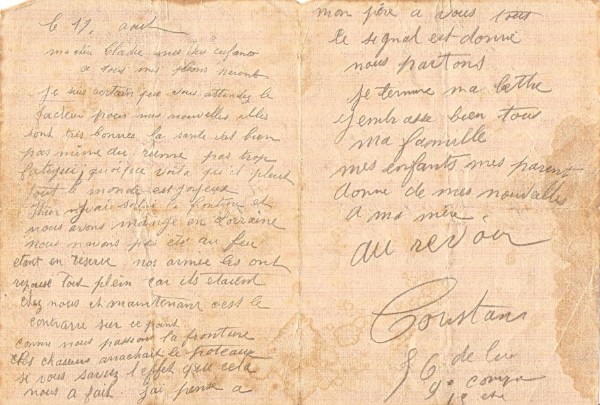 le 17, août
ma chère Claire mes chers enfants
a tous mes
je suis certain que vous attendez le
facteur pour mes nouvelles elles
sont très bonnes la santé est bien
pas même du rhume pas trop
fatigué quoique voila qu'il pleut
tout le monde est joyeux
Hier j'avais salué la frontière et
nous avons mangé en Lorraine
nous navons pas été au feu
etant en reserve nos armée les ont
repoussé tout plein car ils etaient
chez nous et maintenant cest le
contraire sur ce point.
comme nous passions la frontiere
les chasseurs arrachait le poteaux
si vous saviez l'effet que cela
nous a fait. j'ai pensé a
mon père a vous tout
le signal est donné
nous partons
je termine ma lettre
j'embrasse bien tous
ma famille
mes enfants mes parent
donne de mes nouvelles
a ma mère
au revoir
Constans
de lin
9e comp